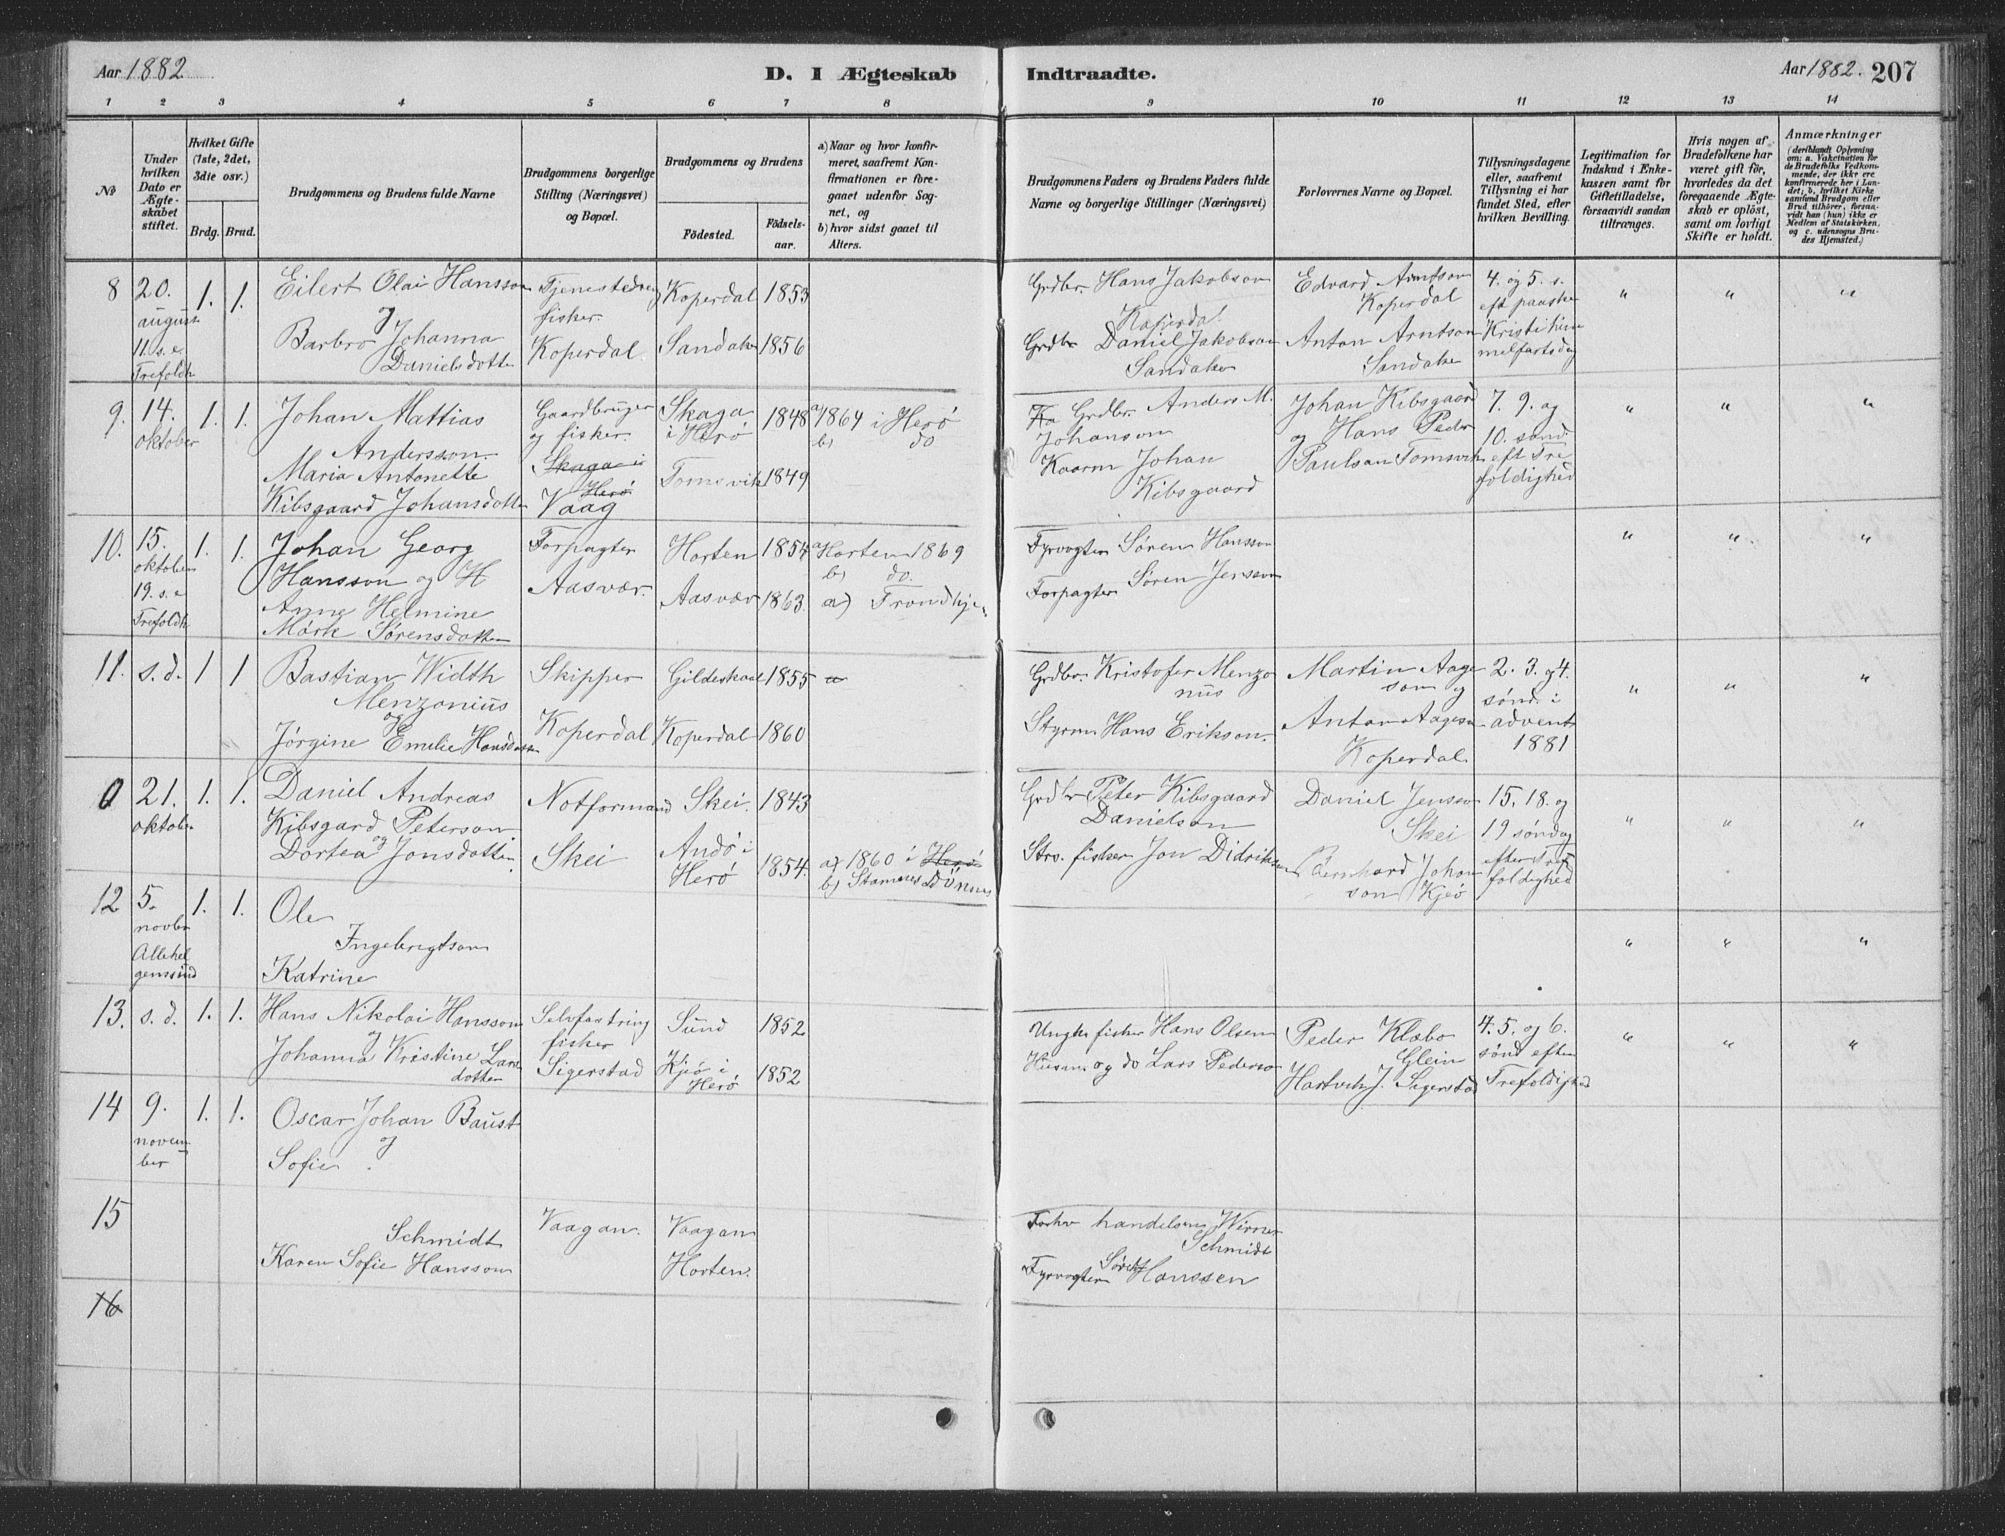 Aar 1882
D. I Ægteskab
Indtraadte.
Aar 1882. 207
1 2 3 4 5 6 7 8 9 10 11 12 13 14
No
Under hvilken Dato er Ægteskabet stiftet.
Hvilket Gifte (1ste, 2det, 3die osv.)
Brdg. Brud.
Brudgommens og Brudens fulde Navne
Brudgommens borgerlige Stilling (Næringsvei) og Bopæl.
Brudgommens og Brudens
Födested.
Födselsaar.
a) Naar og hvor konfirmeret, saafremt Konfirmationen er foregaaet udenfor Sognet, og
b) hvor sidst gaaet til Alters.
Brudgommens Faders og Brudens Faders fulde Navne og borgerlige Stillinger (Næringsvei)
Forlovernes Navne og Bopæl.
Tillysningsdagene eller, saafremt Tillysning ei har fundet Sted, efter hvilken Bevilling.
Legitimation for Indskud i Enkekassen samt for Giftetilladelse, forsaavidt saadan tiltrænges.
Hvis nogen af Brudefolkene har været gift før, hvorledes da det foregaaende Ægteskab er opløst, samt om lovligt Skifte er holdt.
Anmærkninger (deriblandt Oplysning om: a. Vakcination for de Brudefolks Vedkommende, der ikke ere konfirmerede her i Landet; b. hvilket Kirkesamfund Brudgom eller Brud tilhører, forsaavidt han (hun) ikke er Medlem af Statskirken, og c. udensogns Brudes Hjemsted.)
8 20. august 11. s. e. Trefoldh 1. 1.
Eilert Olai Hansson
og
Barbro Johanna
Danielsdotter
fisker.
Koperdal.
Koperdal 1853
Sandaker 1856
Grdbr. Hans Jakobson
Koperdal
Grdbr Daniel Jakobson
Sandaker
Edvard Arntson
Koperdal
Anton Arntson
Sandaker
4. og 5. s.
eft paaske
Kristi him
melfartsdag
" " "
9. 14. oktober 1. 1.
Johan Mattias
Andersson
Maria Antonette
Kibsgaard Johansdotter
Gaardbruger
og fisker.
Skaga i
Herö
Vaag
Skaga
i Herö 1848
Tomsvik 1849
a) 1864 i Herö
b) do
Grdbr. Anders M.
Johanson
Johan
Kibsgaard
Johan Kibsgaard
og Hans Peder
Paulsan Tomsvik
7. 9. og
10. sønd.
eft Tre
foldighed
" " "
10. 15. oktober 19. s. e Trefoldh 1. 1.
Johan Georg
Hansson og H
Anne Helmine
Mörk Sørensdotter
Forpagter
Aasvær.
Horten 1854
Aasvær 1863.
a) Horten 1869
b) do.
a) Trondhje
Fyrvogter Søren Hansson
Forpagter Søren Jensson
" " "
11. s. d. 1 1
Bastian Width
Menzonius
og
Jörgine Emilie Hansdotter
Skipper
Koperdal
Gildeskaal 1855
Koperdal 1860
a
Grdbr. Kristofer Menzo
nius
Styrm Hans Erikson.
Martin Aage
son og
Anton Aageson
Koperdal
2. 3. og 4.
sønd. i
advent
1881
" " "
0 21. oktober 1. 1.
Daniel Andreas
Kibsgard Peterson
og
Dortea Jonsdotter.
Notformand
Skei
Skei. 1843
Andö i
Herö 1854.
a) 1860 i Herö
b) Stamnes Dönnes
Grdbr Peter Kibsgaard
Danielson
Strv. fisker Jon Didrikson
Daniel Jensson
Skei
Bernhard Johan
son Kjeö
15. 18. og
19 søndag
efter Tre
foldighed
" " "
12 5. novbr Allehel gemssønd 1. 1.
Ole
Ingebrigtson
Katrine
" " "
13. s. d. 1. 1.
Hans Nikolai Hansson
og
Johanna Kristine Lars
dotter
fisker
Sigerstad
Sund 1852
Kjeö i
Herö 1852
fisker Hans Olsen
Husm og do Lars Pederson
Peder Klæbo
Glein
Hartvik J. Sigerstad
4. 5. og 6.
sønd efter
Trefoldighed
" " "
14 9. novem ber 1. 1.
Oscar Johan Baust
og
Sofie
15
Schmidt
Karen Sofie Hansson
Vaagan.
Vaagan
Horten.
handelsm Werner
Schmidt
Fyrvogter Søren
Hanssen
16